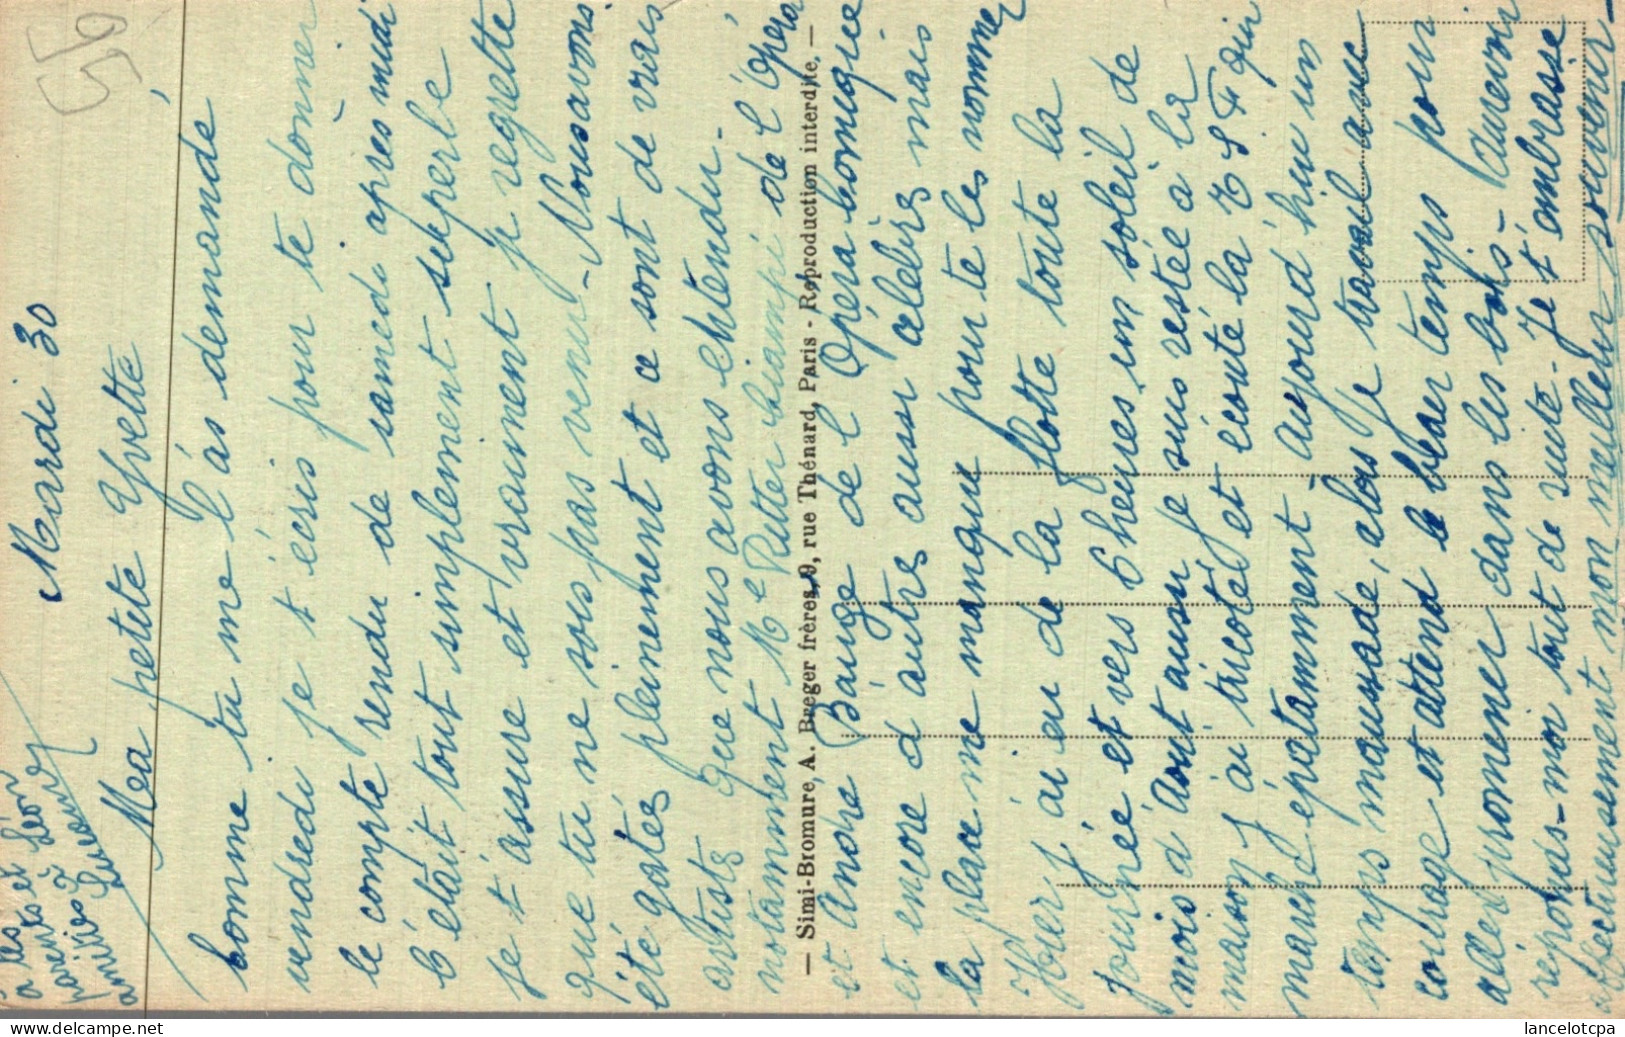 Mardi 30
Ma petite Yvette,
comme tu me l'as demandé
vendredi je t'écris pour te donner
le compte rendu de samedi après midi
C'était tout simplement superbe
je t'assure et vraiment je regrette
que tu ne sois pas venu - Nous avons
été gatés pleinement et ce sont de vrais
artists que nous avons entendu -
notamment Me Ritter Ciampi de l'Opéra
— Simi-Bromure, A. Breger frères, 9, rue Thénard, Paris - Reproduction interdite. —
et André Baugé de l'Opéra comique
et encore d'autres aussi célèbres mais
la place me manque pour te les nommer
Hier j'ai eu de la flotte toute la
journée et vers 6 heures un soleil de
mois d'Aout aussi je suis restée à la
maison j'ai tricoté et écouté la T S F qui
marché épatamment - aujourd'hui un
temps maussade, alors je travail avec
courage et attend le beau temps pour
aller promener dans les bois - Aurevoir
réponds-moi tout de suite. Je t'embrasse
affectueusement mon meilleur souvenir
à tes parents et Léon
amitiés
Lucienne
lancelotcpa